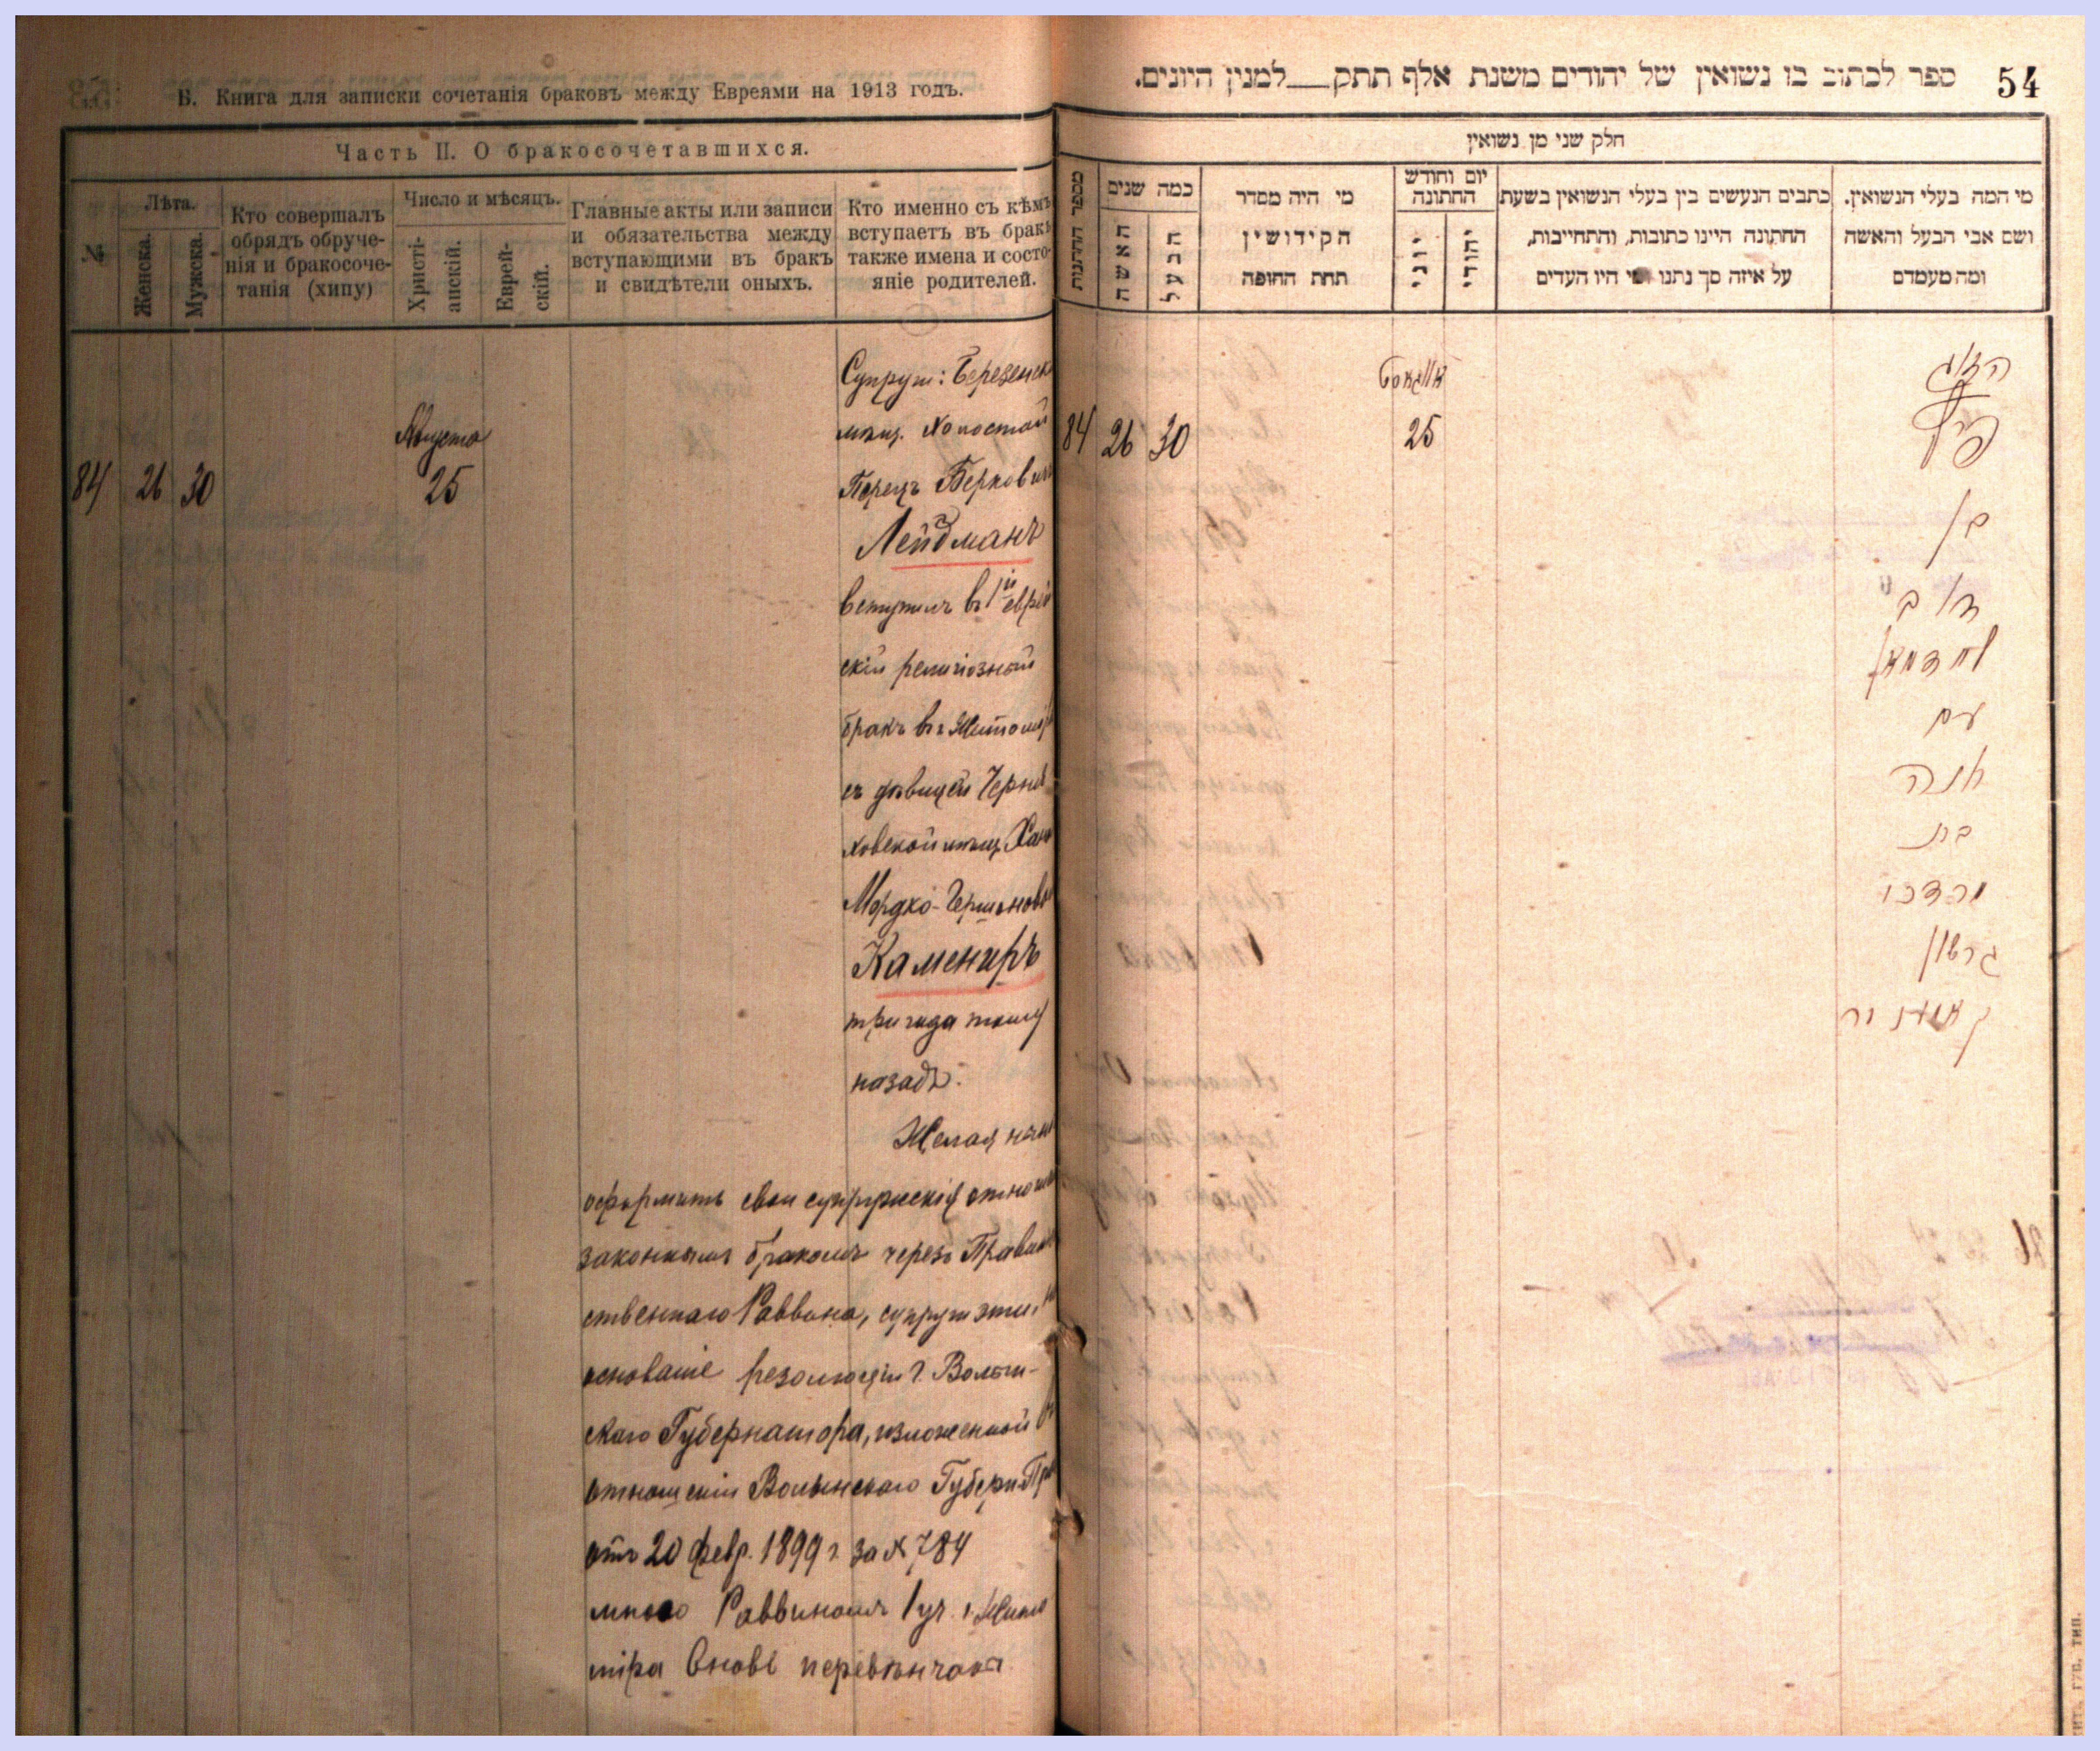 Б. Книга для записки сочетанія браковъ между Евреями на 1913 годъ.
Часть II. О бракосочетавшихся.
№
Лѣта.
Женска.
Мужска.
Кто совершалъ
обрядъ обруче-
нія и бракосоче-
танія (хипу)
Число и мѣсяцъ.
Христі-
анскій.
Еврей-
скій.
Главные акты или записи
и обязательства между
вступающими въ бракъ
и свидѣтели оныхъ.
Кто именно съ кѣмъ
вступаетъ въ бракъ
также имена и состо-
яніе родителей.
84 26 30
Августа
25
Супруги: Березенск
мѣщ. Холостой
Перецъ Беркович
Лейдманъ
вступилъ въ 1й еврей
скій религіозный
бракъ въ г. Житомір
съ дѣвицей Черня
ховской мѣщ. Хан
Мордко-Гершоново
Камениръ
три года тому
назадъ.
Желая нын
оформить свои супружескія отнош
законнымъ бракомъ черезъ Правит
ственнаго Раввина, супруги эти,
основаніе резолюціи г. Волын-
скаго Губернатора, изложенной въ
отношеніи Волынскаго Губерн. Пр
отъ 20 февр. 1899 г. за № 784
мною Раввиномъ 1 уч. г. Жито
міра вновь перевѣнчаны
54
ספר לכתוב בו נשואין של יהודים משנת אלף תתק__למנין היונים.
חלק שני מן נשואין
מי המה בעלי הנשואין.
ושם אבי הבעל והאשה
ומה מעמדם
כתבים הנעשים בין בעלי הנשואין בשעת
החתונה היינו כתובות, והתחייבות,
על איזה סך נתנו ומי היו העדים
יום וחודש
החתונה
יהודי
יוני
מי היה מסדר
הקידושין
תחת החופה
כמה שנים
הבעל
האשה
מספר החתונות
84 26 30
אוגוסט
25
הזוג
פרץ
בן
דוב
לײדמאן
עם
חנה
בת
מרדכי
גרשון
קאמעניר